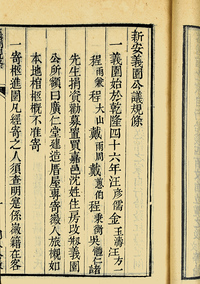 新安義園公議規條
一義園始於乾隆四十六年汪彥儒金玉濤汪方一
程雨程大山戴雨周戴蕙伯程秉衡吳體仁諸
先生捐資勸募置買嘉邑沈姓住房改剏義園
公所額曰廣仁堂建造厝屋專寄徽人旅櫬如
本地棺柩概不准寄
一寄柩進園凡經寄之人須查明寔係徽籍在客